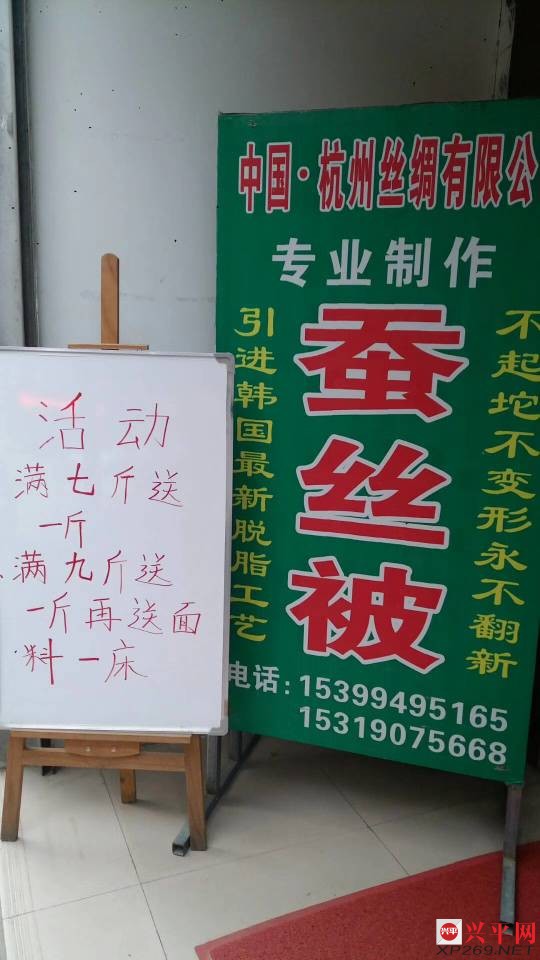 活动
满七斤送
一斤
满九斤送
一斤再送面
料一床
中国·杭州丝绸有限公
专业制作
引进韩国最新脱脂工艺
蚕丝被
不起坨不变形永不翻新
电话：15399495165
15319075668
兴平
兴平网
XP269.NET